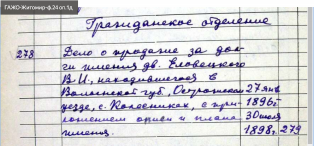 ГАЖО-Житомир-ф.24 оп.1д
Гражданское отделение
278 Дело о продаже за дол-
ги имения дв. Еловецкого
В.И., находившегося в
Волынской губ., Острожском 27 янв
уезде, с. Колесниках, с при- 1896г
ложением описи и плана 30 июля
имения. 1898г. 279